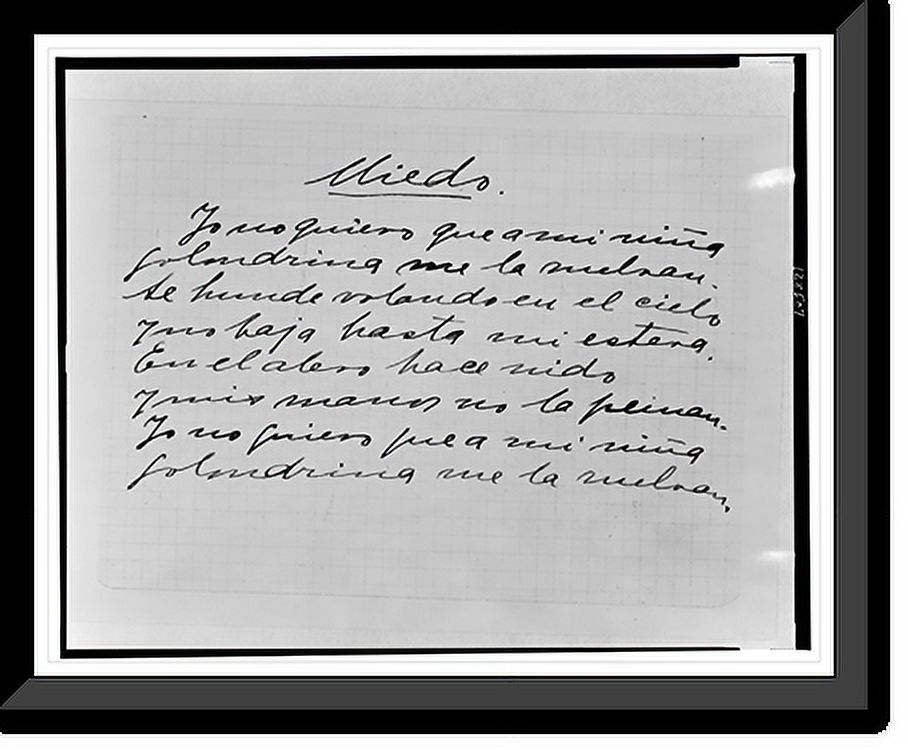 Miedo.
Yo no quiero que a mi niña
golondrina me la vuelvan.
Se hunde volando en el cielo
y no baja hasta mi estera.
En el alero hace nido
y mis manos no la peinan.
Yo no quiero que a mi niña
golondrina me la vuelvan.